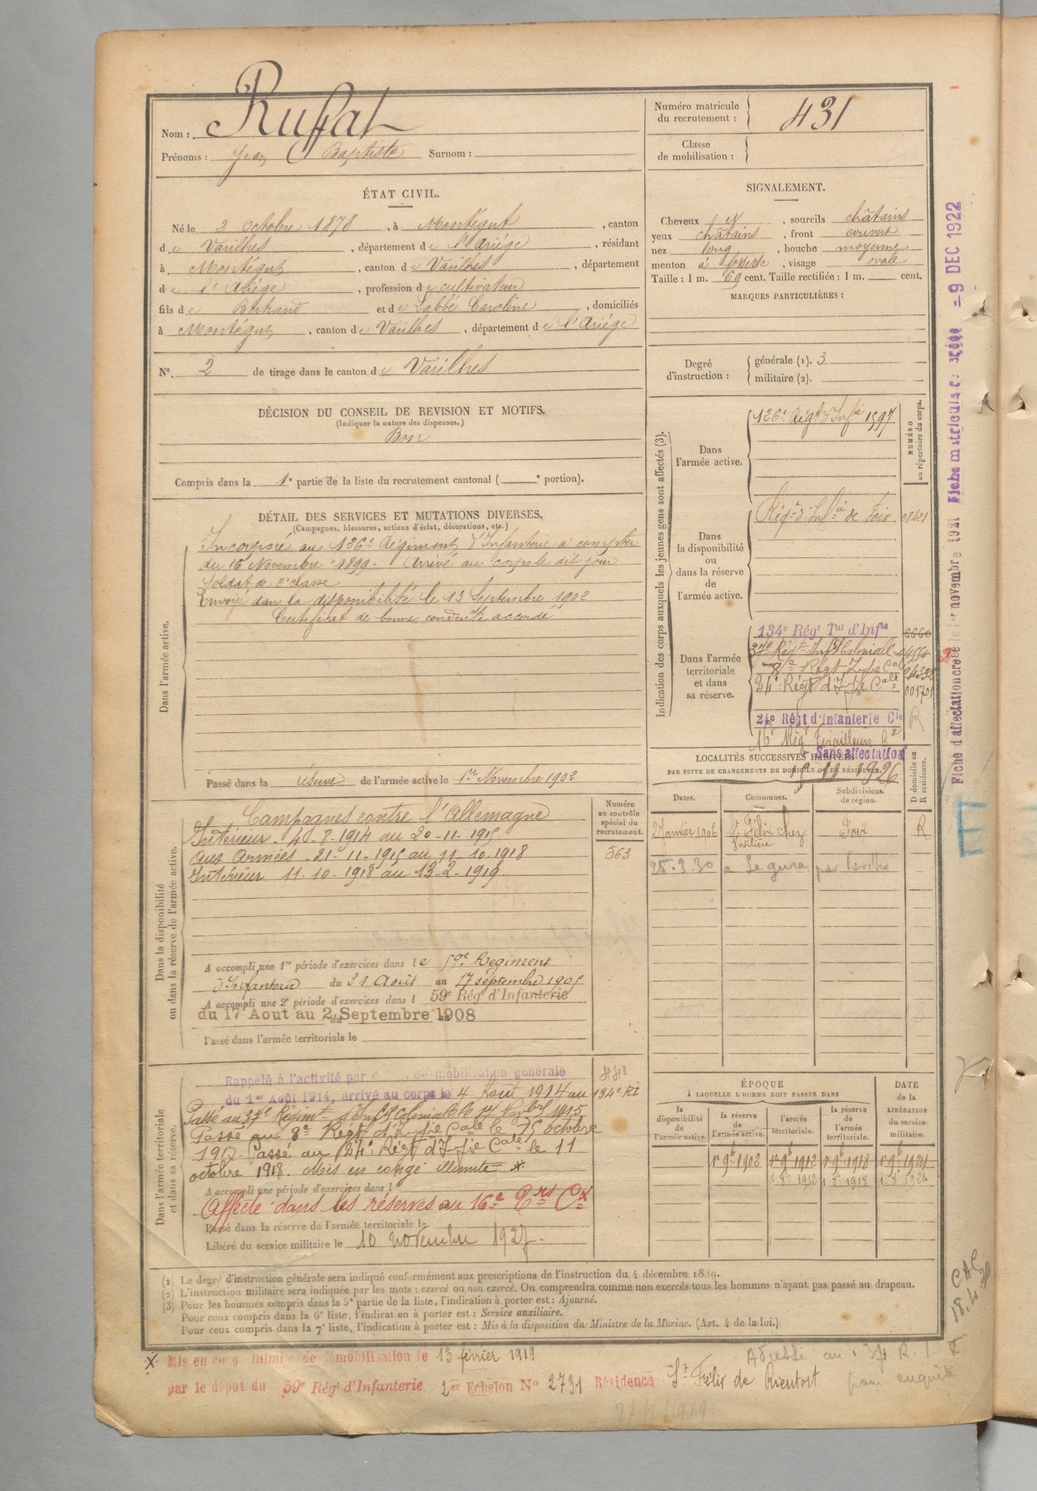 Nom : Rufat
Prénoms : Jean Baptiste Surnom :
Numéro matricule du recrutement : 431
Classe de mobilisation :
ÉTAT CIVIL.
Né le 2 octobre 1878, à Montégut, canton
de Varilhes, département de l'Ariège, résidant
à Montégut, canton de Varilhes, département
de l'Ariège, profession de cultivateur
fils de Bertrand et de Labbé Caroline, domiciliés
à Montégut, canton de Varilhes, département de l'Ariège
N° 2 de tirage dans le canton de Varilhes
DÉCISION DU CONSEIL DE REVISION ET MOTIFS.
(Indiquer la nature des dispenses.)
Bon
Compris dans la 1e partie de la liste du recrutement cantonal ( e portion).
SIGNALEMENT.
Cheveux et, sourcils châtains
yeux châtains, front ouvert
nez long, bouche moyenne
menton à fossette, visage ovale
Taille : 1 m. 69 cent. Taille rectifiée : 1 m. cent.
MARQUES PARTICULIÈRES :
Degré d'instruction : générale (1). 3
militaire (2).
DÉTAIL DES SERVICES ET MUTATIONS DIVERSES.
(Campagnes, blessures, actions d'éclat, décorations, etc.)
Dans l'armée active.
Incorporé au 126e Régiment d'Infanterie à compter
du 16 Novembre 1899. Arrivé au corps le dit jour
Soldat de 2e classe
Envoyé dans la disponibilité le 13 Septembre 1902
Certificat de bonne conduite accordé
Passé dans la réserve de l'armée active le 1er Novembre 1902
Indication des corps auxquels les jeunes gens sont affectés (3).
NUMÉRO au répertoire du corps.
Dans l'armée active.
126e Régt d'Infie 1597
Dans la disponibilité ou dans la réserve de l'armée active.
Régt d'Infie de Foix
Dans l'armée territoriale et dans sa réserve.
134e Régt Tal d'Infie
37e Régt Inf Coloniale
8e Régt d'Ie Cale
24e Régt d'Ie Cale
24e Régt d'Infanterie Cle
16e Régt Tirailleurs
Sans affectation
1926
LOCALITÉS SUCCESSIVES HABITÉES
PAR SUITE DE CHANGEMENTS DE DOMICILE OU DE RÉSIDENCE.
Dates. Communes. Subdivisions de région. D domicile ou R résidence.
2 Janvier 1906 St Félix chez Foix R
25.3.30 a Segura par Varilhes
Dans la disponibilité ou dans la réserve de l'armée active.
Numéro au contrôle spécial du recrutement.
363
Campagnes contre l'Allemagne
Intérieur 4-8-1914 au 20-11-1915
aux Armées 21-11-1915 au 11-10-1918
Intérieur 11-10-1918 au 13-2-1919
A accompli une 1re période d'exercices dans le 59e Régiment
d'Infanterie du 21 Août au 17 septembre 1905
A accompli une 2e période d'exercices dans l 59e Rég d'Infanterie
du 17 Aout au 2 Septembre 1908
Passé dans l'armée territoriale le
Dans l'armée territoriale et dans sa réserve.
Rappelé à l'activité par de mobilisation générale
du 1er Août 1914, arrivé au corps le 4 Août 1914 au 134e RI
Passé au 37e Régimt d'Infie Coloniale le 1915
Passé au 8e Régt d'Infie Cale le 15 octobre
1917 Passé au 24e Régt d'Infie Cale le 11
octobre 1918. Mis en congé illimité x
A accompli une période d'exercices dans l
Affecté dans les réserves au 16e
Passé dans la réserve de l'armée territoriale le
Libéré du service militaire le 10 novembre 1927.
ÉPOQUE
À LAQUELLE L'HOMME DOIT PASSER DANS
la disponibilité de l'armée active. la réserve de l'armée active. l'armée territoriale. la réserve de l'armée territoriale.
DATE de la LIBÉRATION du service militaire.
1er 9b 1902 1er 9b 1912 1er 9b 1918 1er 9b 1924
(1) Le degré d'instruction générale sera indiqué conformément aux prescriptions de l'instruction du 4 décembre 1889.
(2) L'instruction militaire sera indiquée par les mots : exercé ou non exercé. On comprendra comme non exercés tous les hommes n'ayant pas passé au drapeau.
(3) Pour les hommes compris dans la 5e partie de la liste, l'indication à porter est : Ajourné.
Pour ceux compris dans la 6e liste, l'indication à porter est : Service auxiliaire.
Pour ceux compris dans la 7e liste, l'indication à porter est : Mis à la disposition du Ministre de la Marine. (Art. 4 de la loi.)
x Mis en congé illimité de démobilisation le 13 février 1919
par le dépôt du 59e Régt d'Infanterie 2e Echelon N° 2731 Résidence St Félix de Rieutort
Adressé au
pour enquête
Fiche d'affectation créée le 1er novembre 1921 Fiche matricule créée -9 DEC 1922